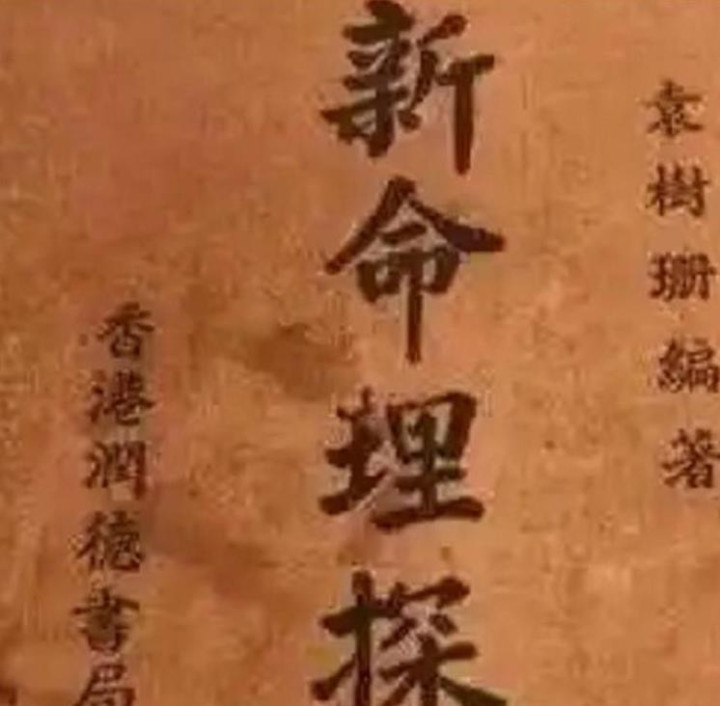 袁樹珊編著
新命理探
香港潤德書局